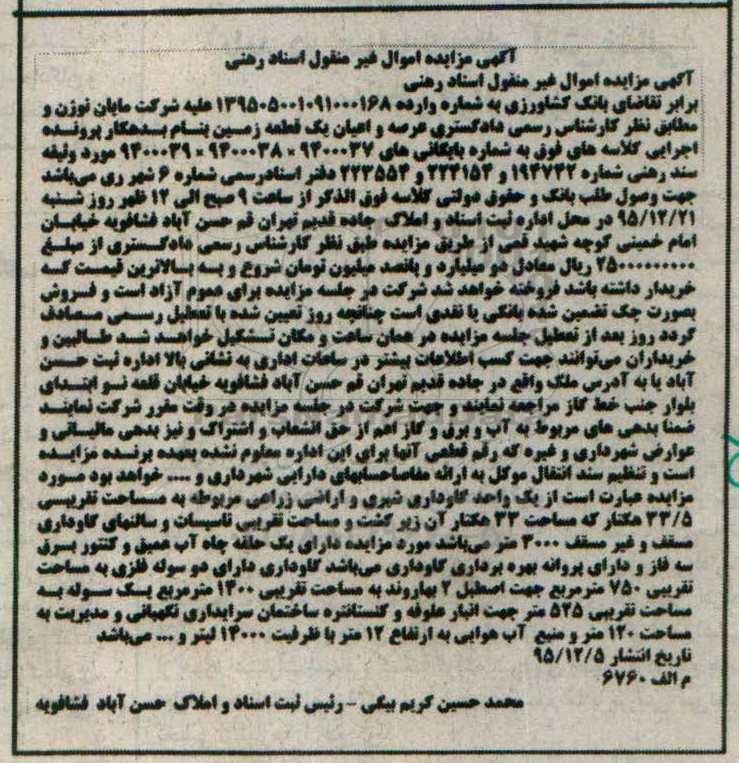 آگهی مزایده اموال غیر منقول اسناد رهنی
آگهی مزایده اموال غیر منقول اسناد رهنی
برابر تقاضای بانک کشاورزی به شماره وارده ۱۳۹۵۰۵۰۰۱۰۹۱۰۰۰۱۶۸ علیه شرکت مابان توزن و
مطابق نظر کارشناس رسمی دادگستری عرصه و اعیان یک قطعه زمین بنام بدهکار پرونده
اجرایی کلاسه های فوق به شماره بایگانی های ۹۴۰۰۰۳۷ × ۹۴۰۰۰۳۸ × ۹۴۰۰۰۳۹ مورد وثیقه
سند رهنی شماره ۱۹۴۷۴۲ و ۲۲۴۱۵۴ و ۲۲۳۵۵۴ دفتر اسنادرسمی شماره ۶ شهر ری می‌باشد
جهت وصول طلب بانک و حقوق دولتی کلاسه فوق الذکر از ساعت ۹ صبح الی ۱۲ ظهر روز شنبه
۹۵/۱۲/۲۱ در محل اداره ثبت اسناد و املاک جاده قدیم تهران قم حسن آباد فشافویه خیابان
امام خمینی کوچه شهید قمی از طریق مزایده طبق نظر کارشناس رسمی دادگستری از مبلغ
۲۵۰۰۰۰۰۰۰۰۰ ریال معادل دو میلیارد و پانصد میلیون تومان شروع و به بالاترین قیمت که
خریدار داشته باشد فروخته خواهد شد شرکت در جلسه مزایده برای عموم آزاد است و فروش
بصورت چک تضمین شده بانکی یا نقدی است چنانچه روز تعیین شده با تعطیل رسمی مصادف
گردد روز بعد از تعطیل جلسه مزایده در همان ساعت و مکان تشکیل خواهد شد طالبین و
خریداران می‌توانند جهت کسب اطلاعات بیشتر در ساعات اداری به نشانی بالا اداره ثبت حسن
آباد یا به آدرس ملک واقع در جاده قدیم تهران قم حسن آباد فشافویه خیابان قلعه نو ابتدای
بلوار جنب خط گاز مراجعه نمایند و جهت شرکت در جلسه مزایده در وقت مقرر شرکت نمایند
ضمنا بدهی های مربوط به آب و برق و گاز اعم از حق انشعاب و اشتراک و نیز بدهی مالیاتی و
عوارض شهرداری و غیره که رقم قطعی آنها برای این اداره معلوم نشده بعهده برنده مزایده
است و تنظیم سند انتقال موکل به ارائه مفاصاحسابهای دارایی شهرداری و .... خواهد بود مورد
مزایده عبارت است از یک واحد گاوداری شیری و اراضی زراعی مربوطه به مساحت تقریبی
۳۳/۵ هکتار که مساحت ۳۳ هکتار آن زیر کشت و مساحت تقریبی تاسیسات و سالنهای گاوداری
مسقف و غیر مسقف ۳۰۰۰ متر می‌باشد مورد مزایده دارای یک حلقه چاه آب عمیق و کنتور برق
سه فاز و دارای پروانه بهره برداری گاوداری می‌باشد گاوداری دارای دو سوله فلزی به مساحت
تقریبی ۷۵۰ مترمربع جهت اصطبل ۲ بهاروند به مساحت تقریبی ۱۴۰۰ مترمربع یک سوله به
مساحت تقریبی ۵۲۵ متر جهت انبار علوفه و کنسانتره ساختمان سرایداری نگهبانی و مدیریت به
مساحت ۱۲۰ متر و منبع آب هوایی به ارتفاع ۱۲ متر با ظرفیت ۱۴۰۰۰ لیتر و ... می‌باشد
تاریخ انتشار ۹۵/۱۲/۵
م الف ۶۷۶۰
محمد حسین کریم بیکی - رئیس ثبت اسناد و املاک حسن آباد فشافویه